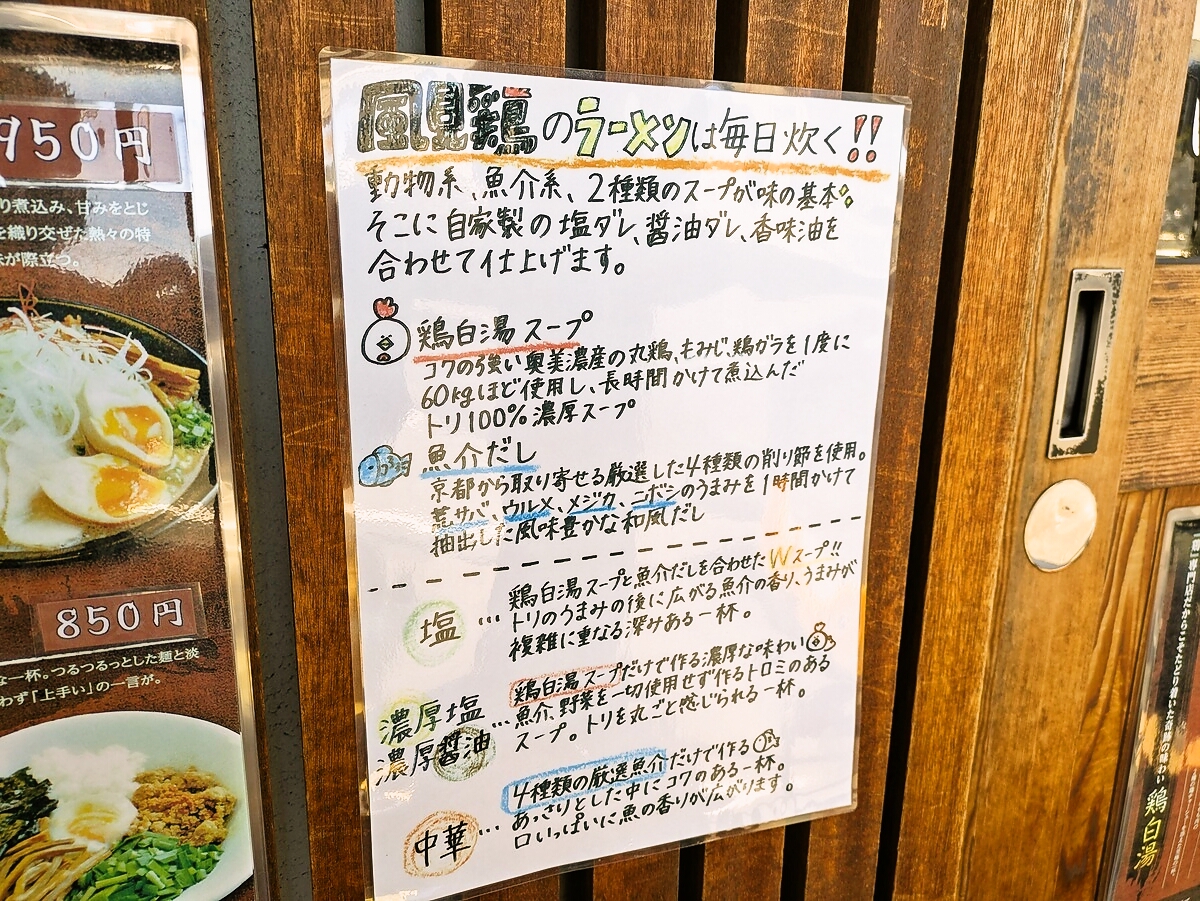 950円
り煮込み、甘みをとじ
を織り交ぜた熱々の特
味が際立つ。
850円
な一杯。つるつるっとした麺と淡
わず「上手い」の一言が。
風見鶏のラーメンは毎日炊く!!
動物系、魚介系、2種類のスープが味の基本
そこに自家製の塩ダレ、醤油ダレ、香味油を
合わせて仕上げます。
鶏白湯スープ
コクの強い奥美濃産の丸鶏、もみじ、鶏ガラを1度に
60kgほど使用し、長時間かけて煮込んだ
トリ100%濃厚スープ
魚介だし
京都から取り寄せる厳選した4種類の削り節を使用。
荒サバ、ウルメ、メジカ、ニボシのうまみを1時間かけて
抽出した風味豊かな和風だし
塩…鶏白湯スープと魚介だしを合わせたWスープ!!
トリのうまみの後に広がる魚介の香り、うまみが
複雑に重なる深みある一杯。
濃厚塩
濃厚醤油…鶏白湯スープだけで作る濃厚な味わい
魚介、野菜を一切使用せず作るトロミのある
スープ。トリを丸ごと感じられる一杯。
中華…4種類の厳選魚介だけで作る
あっさりとした中にコクのある一杯。
口いっぱいに魚の香りが広がります。
専門店だからこそたどり着いた
鶏白湯